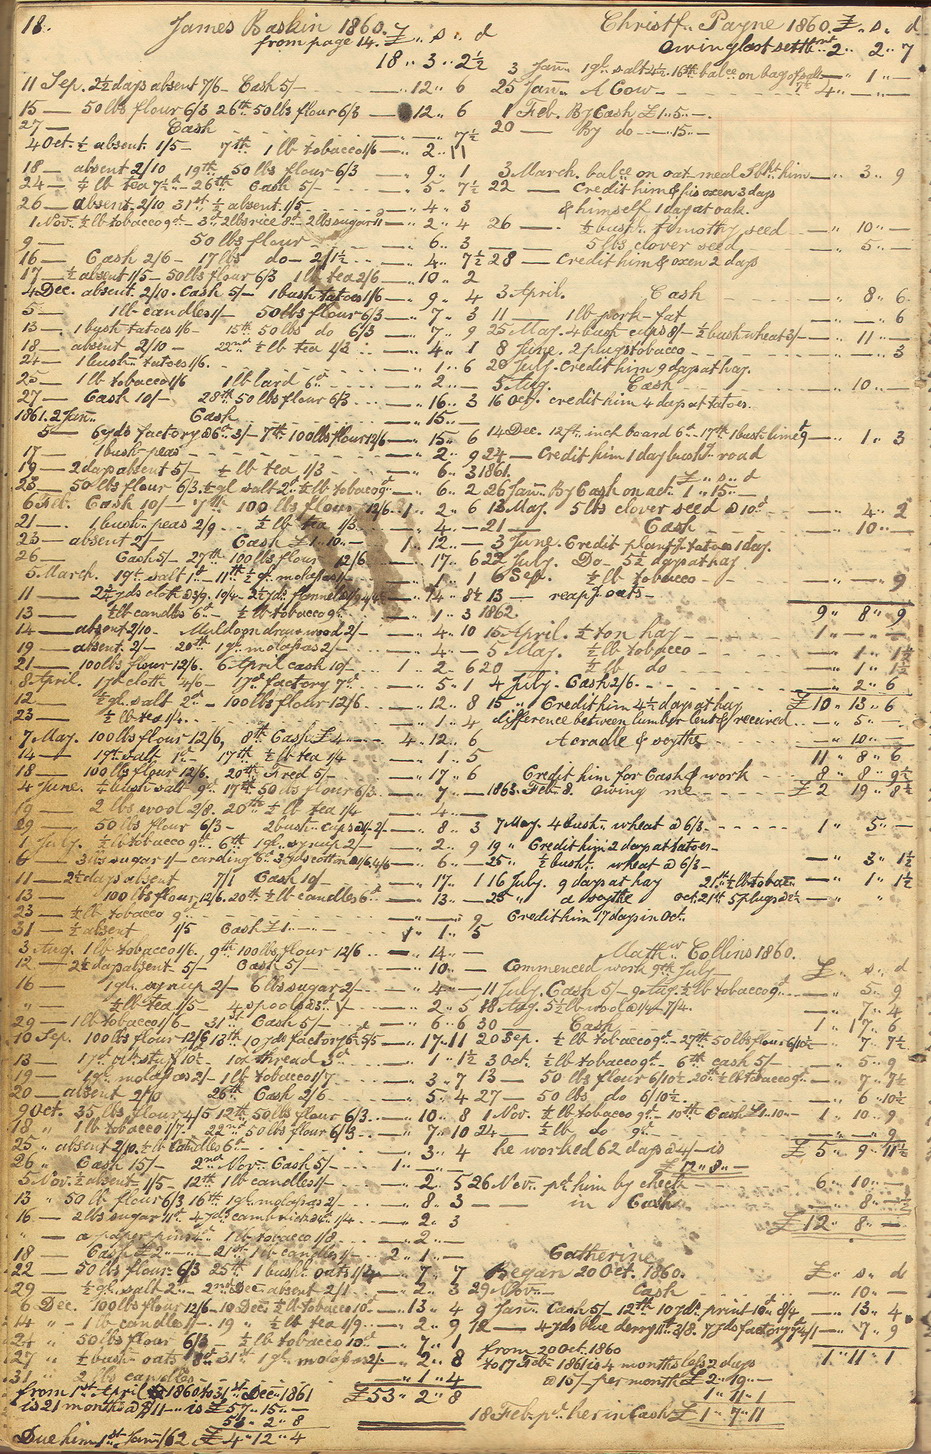 18. James Baskin 1860. £ „ s. „ d
from page 14. 18 „ 3 „ 2½
11 Sep. 2½ days absent 7/6 - Cash 5/- — „ 12 „ 6
15 — 50 lbs flour 6/3 26th 50 lbs flour 6/3 — „ 12 „ 6
27 — Cash 7½
4 Oct. ½ absent 1/5 - 7th 1 lb tobacco 1/6 — „ 2 „ 11
18 — absent 2/10 19th 50 lbs flour 6/3 — „ 9 „ 1
24 — ¼ lb tea 7½d - 26th Cash 5/- — „ 5 „ 7½
26 — absent 2/10 31st ½ absent 1/5 — „ 4 „ 3
1 Nov. ½ lb tobacco 9d - 3d 2 lbs rice 8d - 2 lbs sugar — „ 2 „ 4
9 — 50 lbs flour — „ 6 „ 3
16 — Cash 2/6 - 17 lbs do - 2/1½ — „ 4 „ 7½
17 — ½ absent 1/5 - 50 lbs flour 6/3 1 lb tea 2/6 — „ 10 „ 2
4 Dec. absent 2/10 - Cash 5/- 1 bush tatoes 1/6 — „ 9 „ 4
5 — 1 lb candles 1/- 50 lbs flour 6/3 — „ 7 „ 3
13 — 1 bush tatoes 1/6 - 15th 50 lbs do 6/3 — „ 7 „ 9
18 — absent 2/10 - 22nd ½ lb tea 1/3 — „ 4 „ 1
24 — 1 bush tatoes 1/6. — „ 1 „ 6
25 — 1 lb tobacco 1/6 1 lb lard 6d — „ 2 „ —
27 — Cash 10/- 28th 50 lbs flour 6/3 — „ 16 „ 3
1861. 2 Jan. Cash — „ 15 „ —
5 — 6 yds factory @ 6d 3/- 7th 100 lbs flour 12/6 — „ 15 „ 6
17 — 1 bush peas — „ 2 „ 9
19 — 2 days absent 5/- ½ lb tea 1/3 — „ 6 „ 3
23 — 50 lbs flour 6/3. ½ gl salt 2d ½ lb tobacco 9d — „ 6 „ 2
6 Feb. Cash 10/- 7th 100 lbs flour 12/6 1 „ 2 „ 6
21 — 1 bush peas 2/9 ½ lb tea 1/3 — „ 4 „ —
23 — absent 2/- Cash £1 „ 10 „ — 1 „ 12 „ —
26 Cash 5/- 27th 100 lbs flour 12/6 — „ 17 „ 6
5 March. 1 gl salt 1d - 11th ½ gl molasses — „ 1 „ 1
11 — yds cloth — „ 14 „ 8½
13 — ½ lb candles 6d - ½ lb tobacco 9d — „ 1 „ 3
14 — absent 2/10 - Muldoon draw wood 2/- — „ 4 „ 10
19 — absent 2/- 20th 1 gl molasses 2/- — „ 4 „ —
21 — 100 lbs flour 12/6. 6 April cash 10/- 1 „ 2 „ 6
8 April. 1 yd cloth 4/6 - 1 yd factory 7d — „ 5 „ 1
12 — ½ gl salt 2d - 100 lbs flour 12/6 — „ 12 „ 8
23 — ½ lb tea 1/4 — „ 1 „ 4
7 May. 100 lbs flour 12/6, 8th Cash £4 — 4 „ 12 „ 6
14 — 1 gl salt 1d - 17th ½ lb tea 1/4 — „ 1 „ 5
18 — 100 lbs flour 12/6. 20th 5/- — „ 17 „ 6
4 June. ½ bush salt 9d 17th 50 lbs flour 6/3 — „ 7 „ —
19 — 2 lbs wool 2/8. 20th ½ lb tea 1/4 — „ 4 „ —
29 — 50 lbs flour 6/3 - 2 bush — „ 8 „ 3
1 July. ½ lb tobacco 9d - 6th 1 gl syrup 2/- — „ 2 „ 9
6 — 3 lbs sugar 1/- carding 6d — „ 6 „ —
11 — 2½ days absent 7/1 Cash 10/- — „ 17 „ 1
13 — 100 lbs flour 12/6. 20th ½ lb candles 6d — „ 13 „ —
23 — ½ lb tobacco 9d — „ — „ 9
31 — ½ absent 1/5 Cash £1 1 „ 1 „ 5
3 Aug. 1 lb tobacco 1/6. 9th 100 lbs flour 12/6 — „ 14 „ —
12 — 2½ days absent 5/- Cash 5/- — „ 10 „ —
16 — 1 gl syrup 2/- 6 lbs sugar 2/- — „ 4 „ —
„ ½ lb tea 1/5 4 spools — „ 2 „ 5
29 — 1 lb tobacco 1/6 - 31st Cash 5/- — „ 6 „ 6
10 Sep. 100 lbs flour 12/6 13th 10 yds factory 5/5 — „ 17 „ 11
13 — thread 3d — „ 1 „ 1½
19 — 1 gl molasses 2/- 1 lb tobacco 1/7 — „ 3 „ 7
20 — absent 2/10 26th Cash 2/6 — „ 5 „ 4
9 Oct. 35 lbs flour 4/5 12th 50 lbs flour 6/3 — „ 10 „ 8
18 „ 1 lb tobacco 1/7 22nd 50 lbs flour 6/3 — „ 7 „ 10
25 „ absent 2/10. ½ lb Candles 6d — „ 3 „ 4
26 „ Cash 15/- 2nd Nov. Cash 5/- 1 „ — „ —
5 Nov. ½ absent 1/5 - 12th 1 lb candles 1/- — „ 2 „ 5
13 „ 50 lb flour 6/3 16th 1 gl molasses 2/- — „ 8 „ 3
16 — 2 lbs sugar 11d 4 yds cambric 1/4 — „ 2 „ 3
„ — a paper pins 4d 1 lb tobacco 1/8 — „ 2 „ —
18 — Cash £2 — 21st 1 lb candles 1/- 2 „ 1 „ —
22 — 50 lbs flour 6/3 25th 1 bush oats 1/4 — „ 7 „ 7
29 — ½ gl salt 2d - 2nd Dec. absent 2/1 — „ 2 „ 3
6 Dec. 100 lbs flour 12/6 - 10 Dec. ½ lb tobacco 10d — „ 13 „ 4
14 „ - 1 lb candles 1/- 19 „ ½ lb tea 1/9 — „ 2 „ 9
24 „ 50 lbs flour 6/3 ½ lb tobacco 10d — „ 7 „ 1
27 „ ½ bush oats 8d 31st 1 gl molasses 2/- — „ 2 „ 8
31 — 2 lbs candles — „ 1 „ 4
from 1st April 1860 to 31st Dec. 1861 £53 „ 2 „ 8
is 21 months @ is £57 „ 15 „ —
53 „ 2 „ 8
Due him 1st Jan. 1862 £4 „ 12 „ 4
Christr. Payne 1860. £ „ s. „ d
owing last settlmt 2 „ 2 „ 7
3 Jan. 1 gl. salt 16th balce on bag of salt — „ 1 „ —
25 Jan. A Cow 4 „ — „ —
1 Feb. By Cash £1 „ 5 „ —
20 — By do — 15 „ —
3 March. balce on oat meal him — „ 3 „ 9
22 — Credit him & his oxen 3 days
& himself 1 day at oak.
26 — ½ bush. timothy seed — „ 10 „ —
5 lbs clover seed — „ 5 „ —
28 — Credit him & oxen 2 days
3 April. Cash — „ 8 „ 6
11 — 1 lb pork-fat — „ — „ 6
25 May. 4 bush cups 8/- ½ bush wheat 3/- — „ 11 „ —
8 June. 2 plugs tobacco — „ — „ 3
20 July. Credit him 9 days at hay.
5 Aug. Cash — „ 10 „ —
16 Oct. credit him 4 days at tatoes.
14 Dec. 12 ft. inch board 6d - 17th 1 bush lime 9 — „ 1 „ 3
24 — Credit him 1 day bush road
1861. £ „ s „ d
26 Jan. By Cash on act. 1 „ 15 „ —
13 May. 5 lbs clover seed @ 10d — „ 4 „ 2
21 — Cash — „ 10 „ —
3 June. Credit plantg tatoes 1 day.
22 July. Do - 5½ days at hay
6 Sep. ½ lb tobacco — „ — „ 9
13 — reapg oats - 9 „ 8 „ 9
1862.
15 April. ½ ton hay 1 „ — „ —
5 May. ½ lb tobacco — „ 1 „ 1½
20 — ½ lb do — „ 1 „ 1½
4 July - Cash 2/6 — „ 2 „ 6
15 „ Credit him 4½ days at hay £10 „ 13 „ 6
difference between lumber lent & received — „ 5 „ —
A cradle & scythe — „ 10 „ —
11 „ 8 „ 6
Credit him for Cash & work 8 „ 8 „ 9½
1863. Feb. 8. Owing me £2 „ 19 „ 8½
7 May. 4 bush. wheat @ 6/3 1 „ 5 „ —
19 „ Credit him 2 days at tatoes -
25 „ ½ bush. wheat @ 6/3 — „ 3 „ 1½
16 July. 9 days at hay 21st ½ lb tobac. — „ 1 „ 1½
25 „ a scythe Oct. 21st 5 plugs
Credit him 17 days in Oct.
Mathw Collins 1860.
Commenced work 9th July £ „ s „ d
11 July. Cash 5/- 9 Aug. ½ lb tobacco 9d — „ 5 „ 9
18 Aug. 5½ lb wool @ 1/4 - 7/4. — „ 7 „ 4
30 — Cash 1 „ 17 „ 6
20 Sep. ½ lb tobacco 9d - 27th 50 lbs flour 6/10½ — „ 7 „ 7½
3 Oct. ½ lb tobacco 9d - 6th cash 5/- — „ 5 „ 9
13 — 50 lbs flour 6/10½ 20th ½ lb tobacco 9d — „ 7 „ 7½
27 — 50 lbs do 6/10½ — „ 6 „ 10½
1 Nov. ½ lb tobacco 9d - 10th Cash £1 „ 10 — 1 „ 10 „ 9
24 — ½ lb do 9d — „ — „ 9
he worked 62 days @ 4/- is £5 „ 9 „ 11½
£12 „ 8 „ —
26 Nov. pd him by check 6 „ 10 „ —
in Cash — „ 8 „ ½
£12 „ 8 „ —
Catherine
Began 20 Oct. 1860. £ „ s. „ d
29 Nov. Cash — „ 10 „ —
9 Jan. Cash 5/- 12th 10 yds. print 10d 8/4 — „ 13 „ 4
12 — 4 yds blue derry 11d 3/8. 7 yds factory 4/1 — „ 7 „ 9
from 20 Oct. 1860 1 „ 11 „ 1
to 17 Feb 1861 is 4 months less 2 days
@ 15/- per month £2 „ 19 „ —
1 „ 11 „ 1
18 Feb. pd. her in Cash £1 „ 7 „ 11